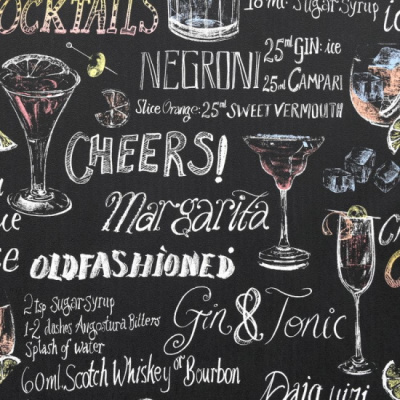 COCKTAILS
10ml Sugar Syrup
NEGRONI
25ml GIN: ice
25ml CAMPARI
Slice Orange: 25ml SWEET VERMOUTH
CHEERS!
Margarita
OLDFASHIONED
2 tsp Sugar Syrup
1-2 dashes Angostura Bitters
Splash of water
60ml. Scotch Whiskey or Bourbon
Gin & Tonic
Daiquiri